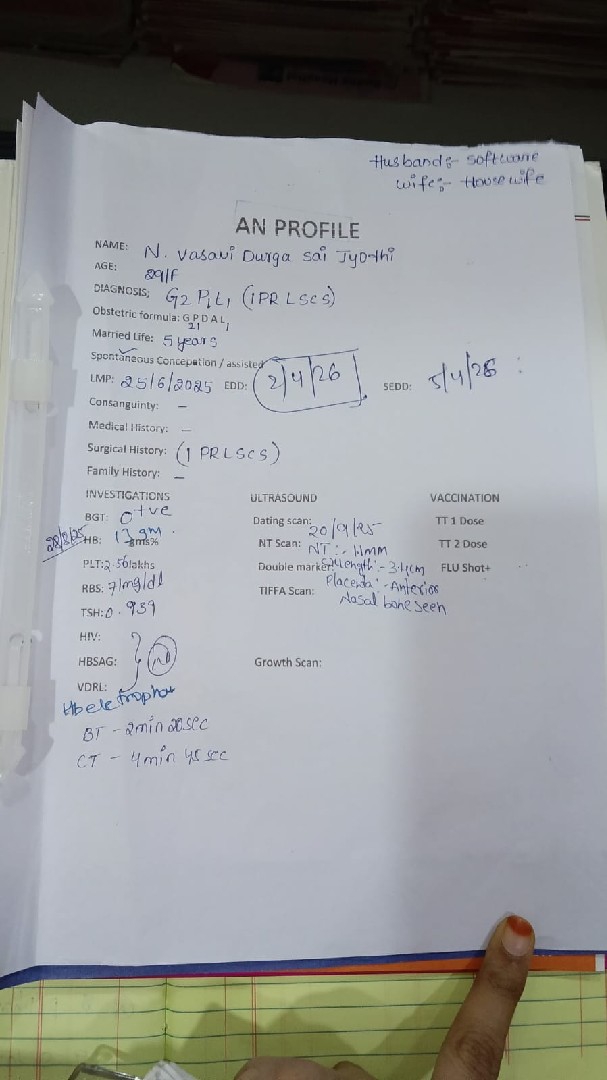 Husband:- software
wife:- Housewife
AN PROFILE
NAME: N. Vasavi Durga Sai Jyothi
AGE: 29/F
DIAGNOSIS: G2 P1L1 (1PR LSCS)
Obstetric formula: G P D A L
2 1 1
Married Life: 5 years
Spontaneous Conception / assisted
LMP: 25/6/2025 EDD: 2/4/26 SEDD: 5/4/26
Consanguinty: –
Medical History: –
Surgical History: (1 PR LSCS)
Family History: –
INVESTIGATIONS ULTRASOUND VACCINATION
BGT: O +ve Dating scan: TT 1 Dose
HB: 13 gm gms% NT Scan: 20/9/25 TT 2 Dose
NT:-
PLT: 2.56 lakhs Double marker: length:- 3.4cm FLU Shot+
RBS: 71mg/dl TIFFA Scan: Placenta:- Anterior
Nasal bone seen
TSH: 0.959
HIV:
HBSAG: Growth Scan:
VDRL:
Hb electropho
BT - 2min 20sec
CT - 4min 45 sec